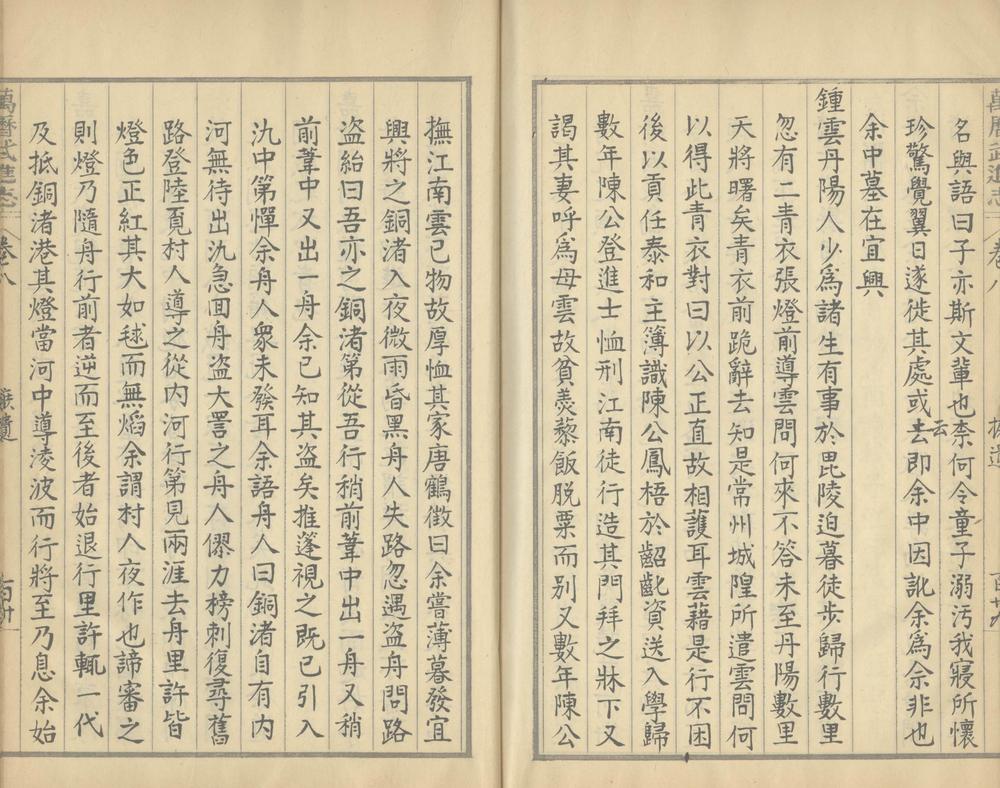 名與語曰子亦斯文輩也柰何令童子溺汚我寢所懷
珍驚覺翼日遂徙其處或云去即余中因訛余爲佘非也
余中墓在宜興
鍾雲丹陽人少爲諸生有事於毘陵迫暮徒步歸行數里
忽有二青衣張燈前導雲問何來不答未至丹陽數里
天將曙矣青衣前跪辭去知是常州城隍所遣雲問何
以得此青衣對曰以公正直故相護耳雲藉是行不困
後以貢任泰和主簿識陳公鳳梧於齠齔資送入學歸
數年陳公登進士恤刑江南徒行造其門拜之牀下又
謁其妻呼爲母雲故貧羮藜飯脫粟而别又數年陳公
撫江南雲已物故厚恤其冢唐鶴徵曰余嘗薄暮發宜
興將之銅渚入夜微雨昏黑舟人失路忽遇盗舟問路
盗紿曰吾亦之銅渚第從吾行稍前葦中出一舟又稍
前葦中又出一舟余已知其盗矣推蓬視之既已引入
氿中第憚余舟人衆未發耳余語舟人曰銅渚自有内
河無待出氿急囬舟盗大詈之舟人僇力榜刺復尋舊
路登陸覔村人導之從内河行第見兩涯去舟里許皆
燈色正紅其大如毬而無熖余謂村人夜作也諦審之
則燈乃隨舟行前者逆而至後者始退行里許輒一代
及抵銅渚港其燈當河中導淩波而行將至乃息余始
萬曆武進志
卷八
摭遺